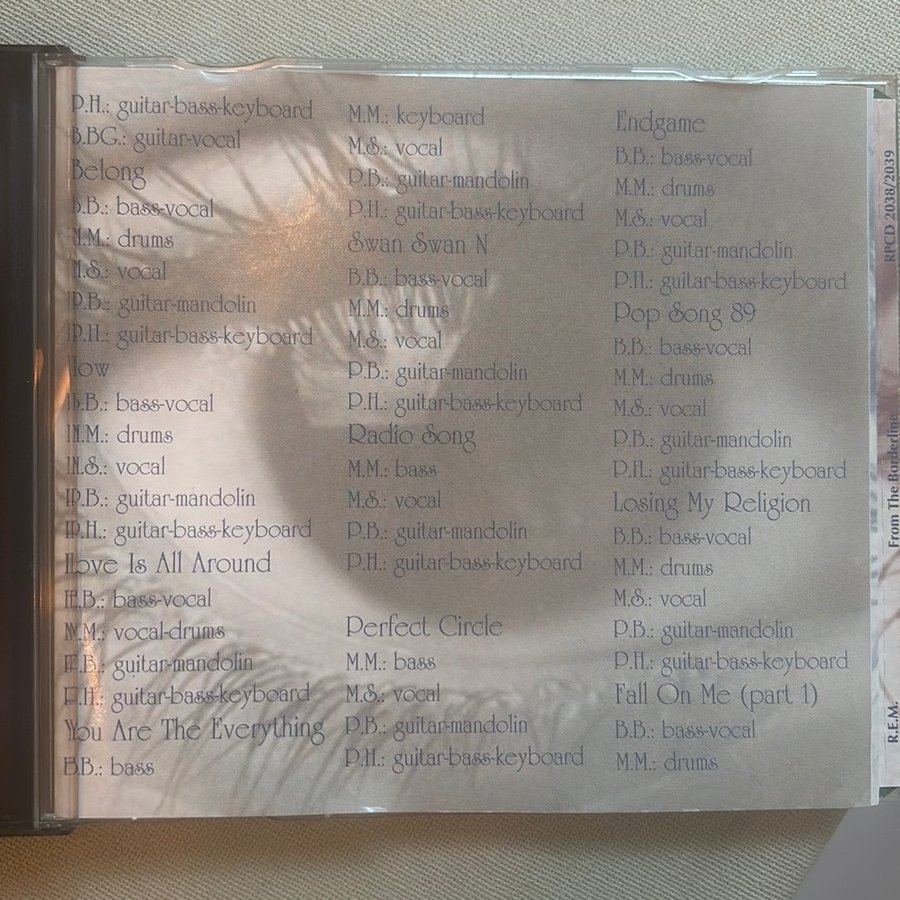 P.H.: guitar-bass-keyboard
B.BG.: guitar-vocal
Belong
B.B.: bass-vocal
M.M.: drums
M.S.: vocal
P.B.: guitar-mandolin
P.H.: guitar-bass-keyboard
Low
B.B.: bass-vocal
M.M.: drums
M.S.: vocal
P.B.: guitar-mandolin
P.H.: guitar-bass-keyboard
Love Is All Around
B.B.: bass-vocal
M.M.: vocal-drums
P.B.: guitar-mandolin
P.H.: guitar-bass-keyboard
You Are The Everything
B.B.: bass
M.M.: keyboard
M.S.: vocal
P.B.: guitar-mandolin
P.H.: guitar-bass-keyboard
Swan Swan N
B.B.: bass-vocal
M.M.: drums
M.S.: vocal
P.B.: guitar-mandolin
P.H.: guitar-bass-keyboard
Radio Song
M.M.: bass
M.S.: vocal
P.B.: guitar-mandolin
P.H.: guitar-bass-keyboard
Perfect Circle
M.M.: bass
M.S.: vocal
P.B.: guitar-mandolin
P.H.: guitar-bass-keyboard
Endgame
B.B.: bass-vocal
M.M.: drums
M.S.: vocal
P.B.: guitar-mandolin
P.H.: guitar-bass-keyboard
Pop Song 89
B.B.: bass-vocal
M.M.: drums
M.S.: vocal
P.B.: guitar-mandolin
P.H.: guitar-bass-keyboard
Losing My Religion
B.B.: bass-vocal
M.M.: drums
M.S.: vocal
P.B.: guitar-mandolin
P.H.: guitar-bass-keyboard
Fall On Me (part 1)
B.B.: bass-vocal
M.M.: drums
R.E.M. From The Borderline RPCD 2038/2039